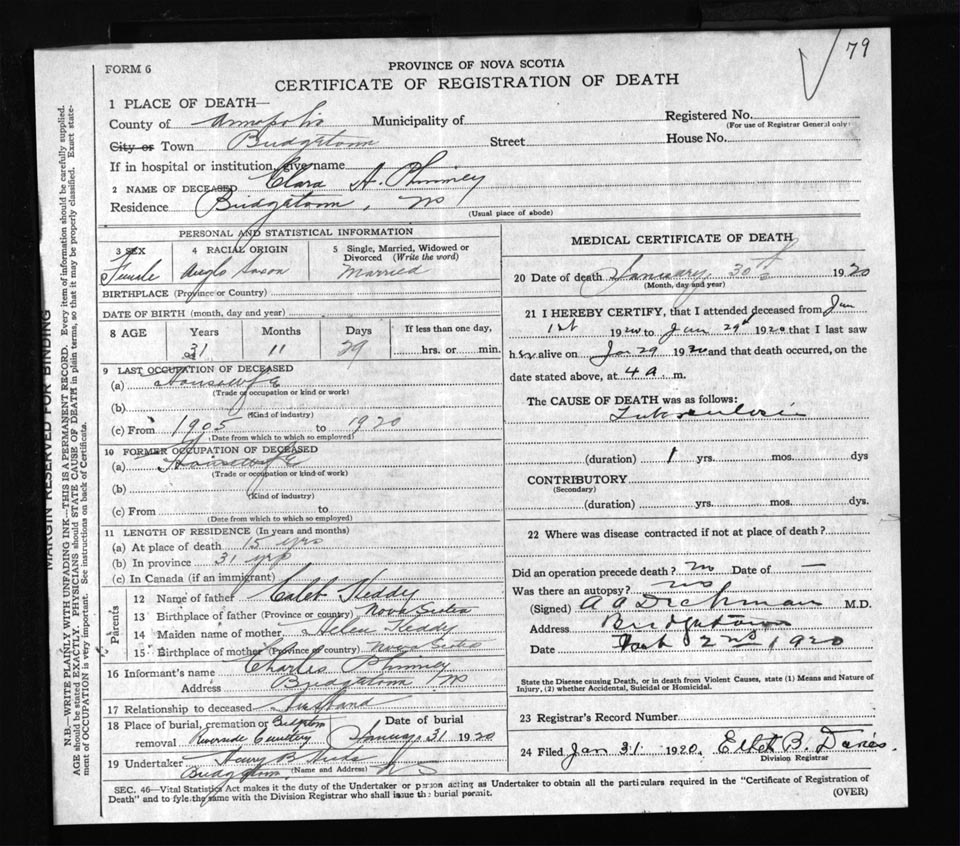 79
FORM 6
PROVINCE OF NOVA SCOTIA
CERTIFICATE OF REGISTRATION OF DEATH
1 PLACE OF DEATH—
County of Annapolis Municipality of
Registered No.
(For use of Registrar General only)
City or Town Bridgetown Street House No.
If in hospital or institution, give name
2 NAME OF DECEASED Clara A. Phinney
Residence Bridgetown, NS
(Usual place of abode)
PERSONAL AND STATISTICAL INFORMATION
3 SEX Female
4 RACIAL ORIGIN Anglo Saxon
5 Single, Married, Widowed or Divorced (Write the word) Married
BIRTHPLACE (Province or Country)
DATE OF BIRTH (month, day and year)
8 AGE Years 31 Months 11 Days 29 If less than one day, hrs. or min.
9 LAST OCCUPATION OF DECEASED
(a) Housewife
(Trade or occupation or kind or work)
(b)
(Kind of industry)
(c) From 1905 to 1920
(Date from which to which so employed)
10 FORMER OCCUPATION OF DECEASED
(a) Housewife
(Trade or occupation or kind of work)
(b)
(Kind of industry)
(c) From to
(Date from which to which so employed)
11 LENGTH OF RESIDENCE (In years and months)
(a) At place of death 15 yrs
(b) In province 31 yrs
(c) In Canada (if an immigrant)
Parents
12 Name of father Caleb Heddy
13 Birthplace of father (Province or country) Nova Scotia
14 Maiden name of mother Helen
15 Birthplace of mother (Province or country) Nova Scotia
16 Informant's name Charles Phinney
Address Bridgetown NS
17 Relationship to deceased Husband
18 Place of burial, cremation or removal Riverside Cemetery
Date of burial January 31 1920
19 Undertaker Henry B.
Bridgetown (Name and Address) NS
MEDICAL CERTIFICATE OF DEATH
20 Date of death January 30th 1920
(Month, day and year)
21 I HEREBY CERTIFY, that I attended deceased from Jan
1st 1920 to Jan 29th 1920 that I last saw
her alive on Jan 29 1920 and that death occurred, on the
date stated above, at 4 a. m.
The CAUSE OF DEATH was as follows:
Tuberculosis
(duration) 1 yrs. mos. dys
CONTRIBUTORY
(Secondary)
(duration) yrs. mos. dys.
22 Where was disease contracted if not at place of death?
Did an operation precede death? no Date of —
Was there an autopsy? no
(Signed) A A Dechman M.D.
Address Bridgetown
Date Feb 2nd, 1920
State the Disease causing Death, or in death from Violent Causes, state (1) Means and Nature of
Injury, (2) whether Accidental, Suicidal or Homicidal.
23 Registrar's Record Number
24 Filed Jan 31 1920. B. Davies.
Division Registrar
SEC. 46—Vital Statistics Act makes it the duty of the Undertaker or person acting as Undertaker to obtain all the particulars required in the "Certificate of Registration of
Death" and to fyle the same with the Division Registrar who shall issue the burial permit.
(OVER)
MARGIN RESERVED FOR BINDING
N.B.—WRITE PLAINLY WITH UNFADING INK—THIS IS A PERMANENT RECORD. Every item of information should be carefully supplied.
AGE should be stated EXACTLY. PHYSICIANS should STATE CAUSE OF DEATH in plain terms, so that it may be properly classified. Exact state-
ment of OCCUPATION is very important. See instructions on back of Certificate.